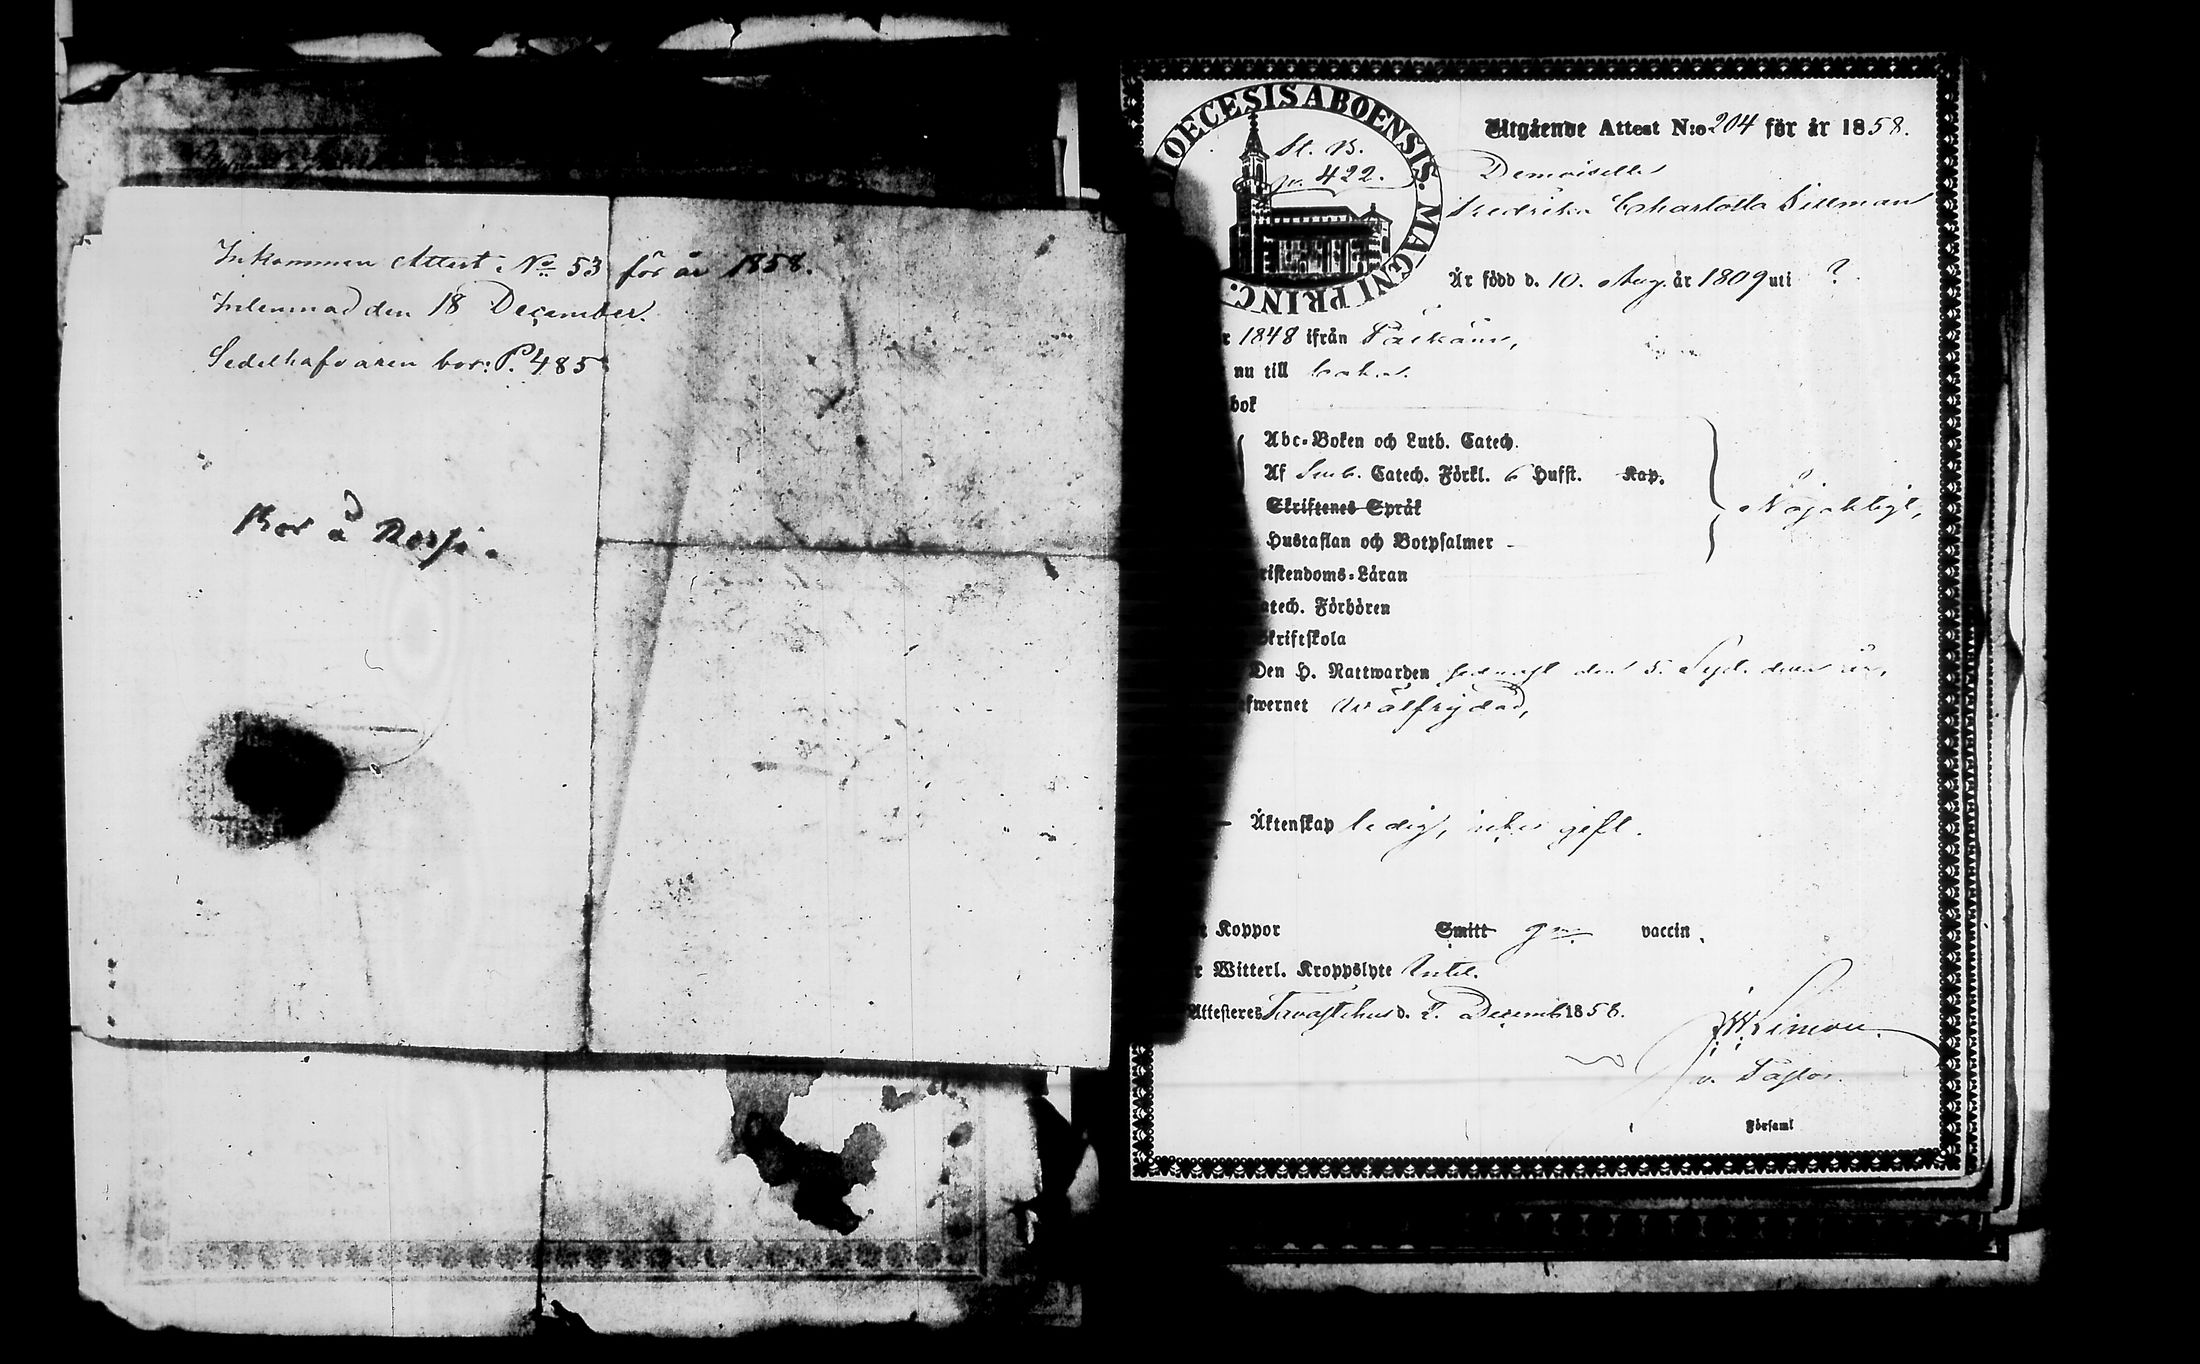 Inkommen Attest No 53 för år 1858.
Inlemnad den 18 December.
Sedelhafvaren bor: P. 485
Bor å
DIOECESIS ABOENSIS. MAGNI PRINC.
St. B.
p. 422.
Utgående Attest N:o 204 för år 1858.
Demoiselle
Fredrika Charlotta Sillman
Är född d. 10. Aug. år 1809 uti ?
1848 ifrån
nu till
bok
Abc-Boken och Luth. Catech.
Af Catech. Förkl. 6 Hufst. Kap.
Skriftenes Språk
Hustaflan och Botpsalmer -
Nöjaktigt,
ristendoms-Läran
atech. Förhören
Skriftskola
Den H. Nattwarden den 5. Sept. detta år,
fwernet Wälfrejdad,
Äktenskap ledig, icke gift.
Koppor Smitt gm. vaccin.
r Witterl. Kroppslyte Intet.
Attesteres Tavastehus d. 2. Decemb 1858.
v. Pastor.
Församl